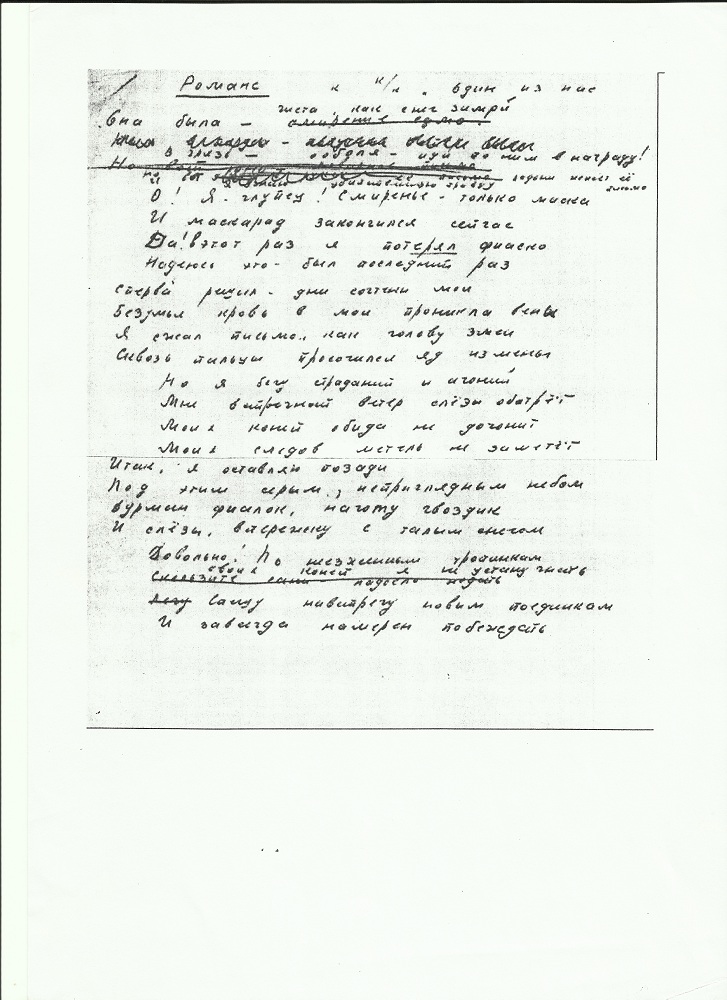 Романс к к/к "Один из нас
чиста, как снег зимой
Она была –
В грязь – соболя – иди по ним в награду!
О! Я – глупец! Смиренье – только маска
И маскарад закончился сейчас
Да! в этот раз я потерял фиаско
Надеюсь это – был последний раз
Сперва решил – дни сочтены мои
Безумья кровь в мои проникла вены
Я сжал письмо, как голову змеи
Сквозь пальцы просочился яд измены
Но я бегу страданий и агоний
Мне встречный ветер слёзы оботрёт
Моих коней обида не догонит
Моих следов метель не заметёт
Итак, я оставляю позади
Под этим серым, неприглядным небом
Дурман фиалок, наготу гвоздик
И слёзы, впережку с талым снегом
Довольно! По заезженным тропинкам
своих коней я не устану гнать
надоело
Бегу Скачу навстречу новым поединкам
И завсегда намерен побеждать